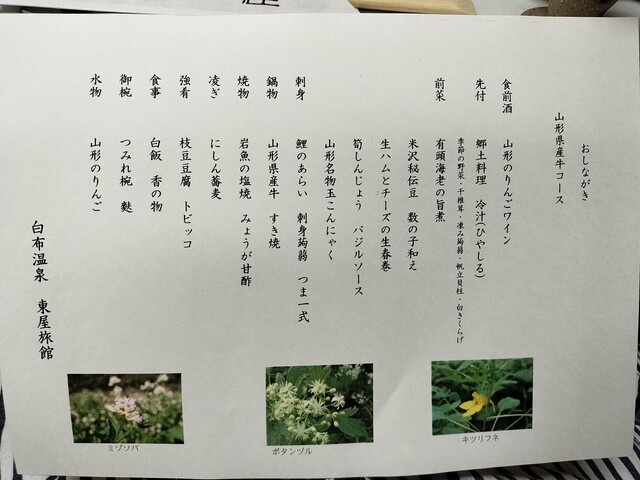 おしながき
山形県産牛コース
食前酒 山形のりんごワイン
先付 郷土料理 冷汁(ひやしる)
季節の野菜・干椎茸・凍み蒟蒻・帆立貝柱・白きくらげ
前菜 有頭海老の旨煮
米沢秘伝豆 数の子和え
生ハムとチーズの生春巻
筍しんじょう バジルソース
山形名物玉こんにゃく
刺身 鯉のあらい 刺身蒟蒻 つま一式
鍋物 山形県産牛 すき焼
焼物 岩魚の塩焼 みょうが甘酢
凌ぎ にしん蕎麦
強肴 枝豆豆腐 トビッコ
食事 白飯 香の物
御椀 つみれ椀 麩
水物 山形のりんご
白布温泉 東屋旅館
キツリフネ
ボタンヅル
ミゾソバ